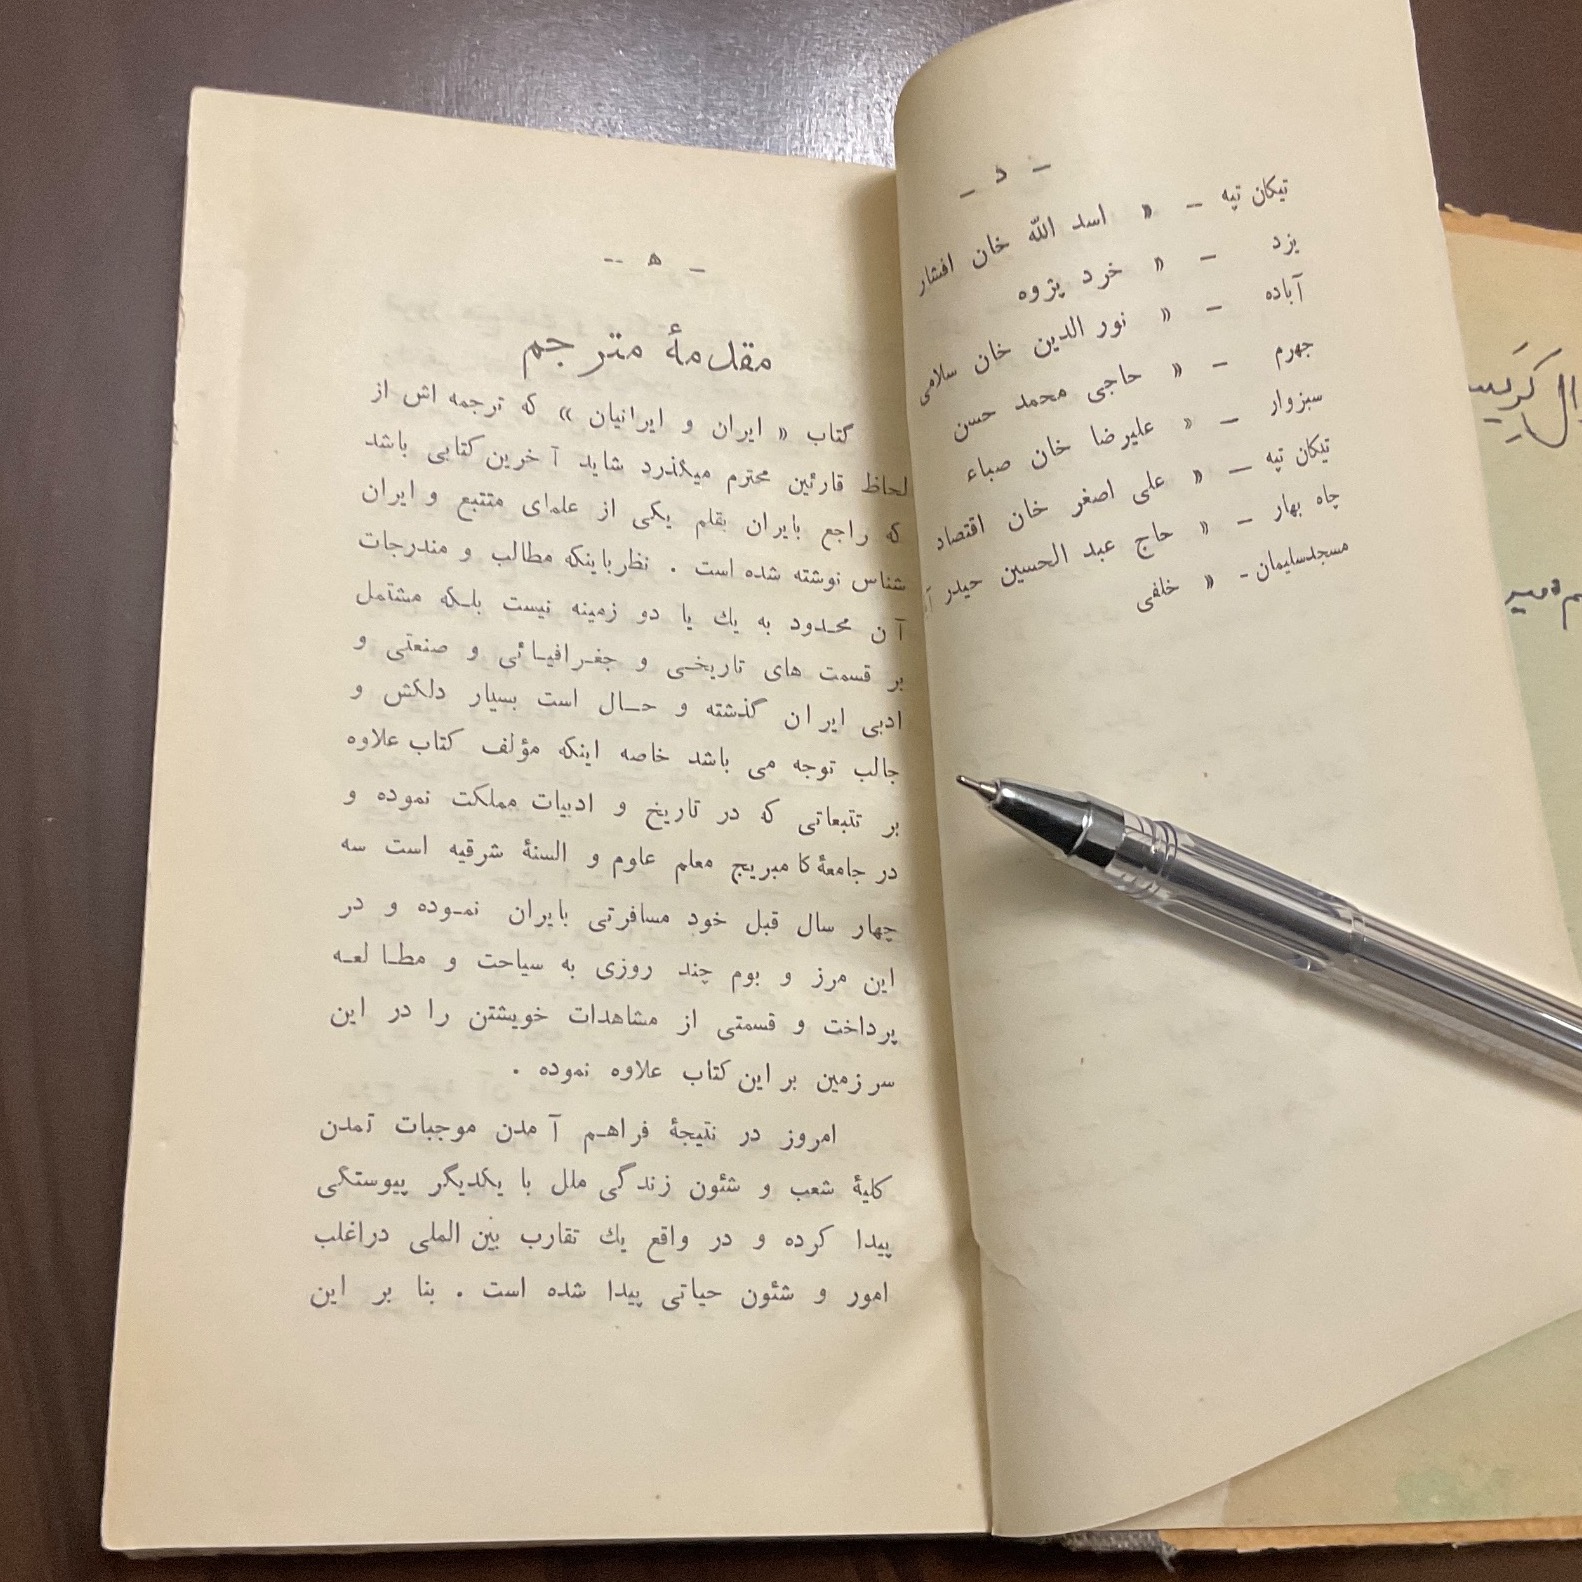 - د -
تیکان تپه - « اسد الله خان افشار
یزد - « خرد پژوه
آباده - « نور الدین خان سلامی
جهرم - « حاجی محمد حسن
سبزوار - « علیرضا خان صباء
تیکان تپه - « علی اصغر خان اقتصاد
چاه بهار - « حاج عبد الحسین حیدر
مسجدسلیمان - « خلفی
- ه --
مقدمهٔ مترجم
کتاب « ایران و ایرانیان » که ترجمه اش از
لحاظ قارئین محترم میگذرد شاید آخرین کتابی باشد
که راجع بایران بقلم یکی از علمای متتبع و ایران
شناس نوشته شده است . نظرباینکه مطالب و مندرجات
آن محدود به یك یا دو زمینه نیست بلکه مشتمل
بر قسمت های تاریخی و جغرافیائی و صنعتی و
ادبی ایران گذشته و حال است بسیار دلکش و
جالب توجه می باشد خاصه اینکه مؤلف کتاب علاوه
بر تتبعاتی که در تاریخ و ادبیات مملکت نموده و
در جامعهٔ کامبریج معلم علوم و السنهٔ شرقیه است سه
چهار سال قبل خود مسافرتی بایران نموده و در
این مرز و بوم چند روزی به سیاحت و مطالعه
پرداخت و قسمتی از مشاهدات خویشتن را در این
سرزمین بر این کتاب علاوه نموده .
امروز در نتیجهٔ فراهم آمدن موجبات تمدن
کلیهٔ شعب و شئون زندگی ملل با یکدیگر پیوستگی
پیدا کرده و در واقع یك تقارب بین الملی دراغلب
امور و شئون حیاتی پیدا شده است . بنا بر این